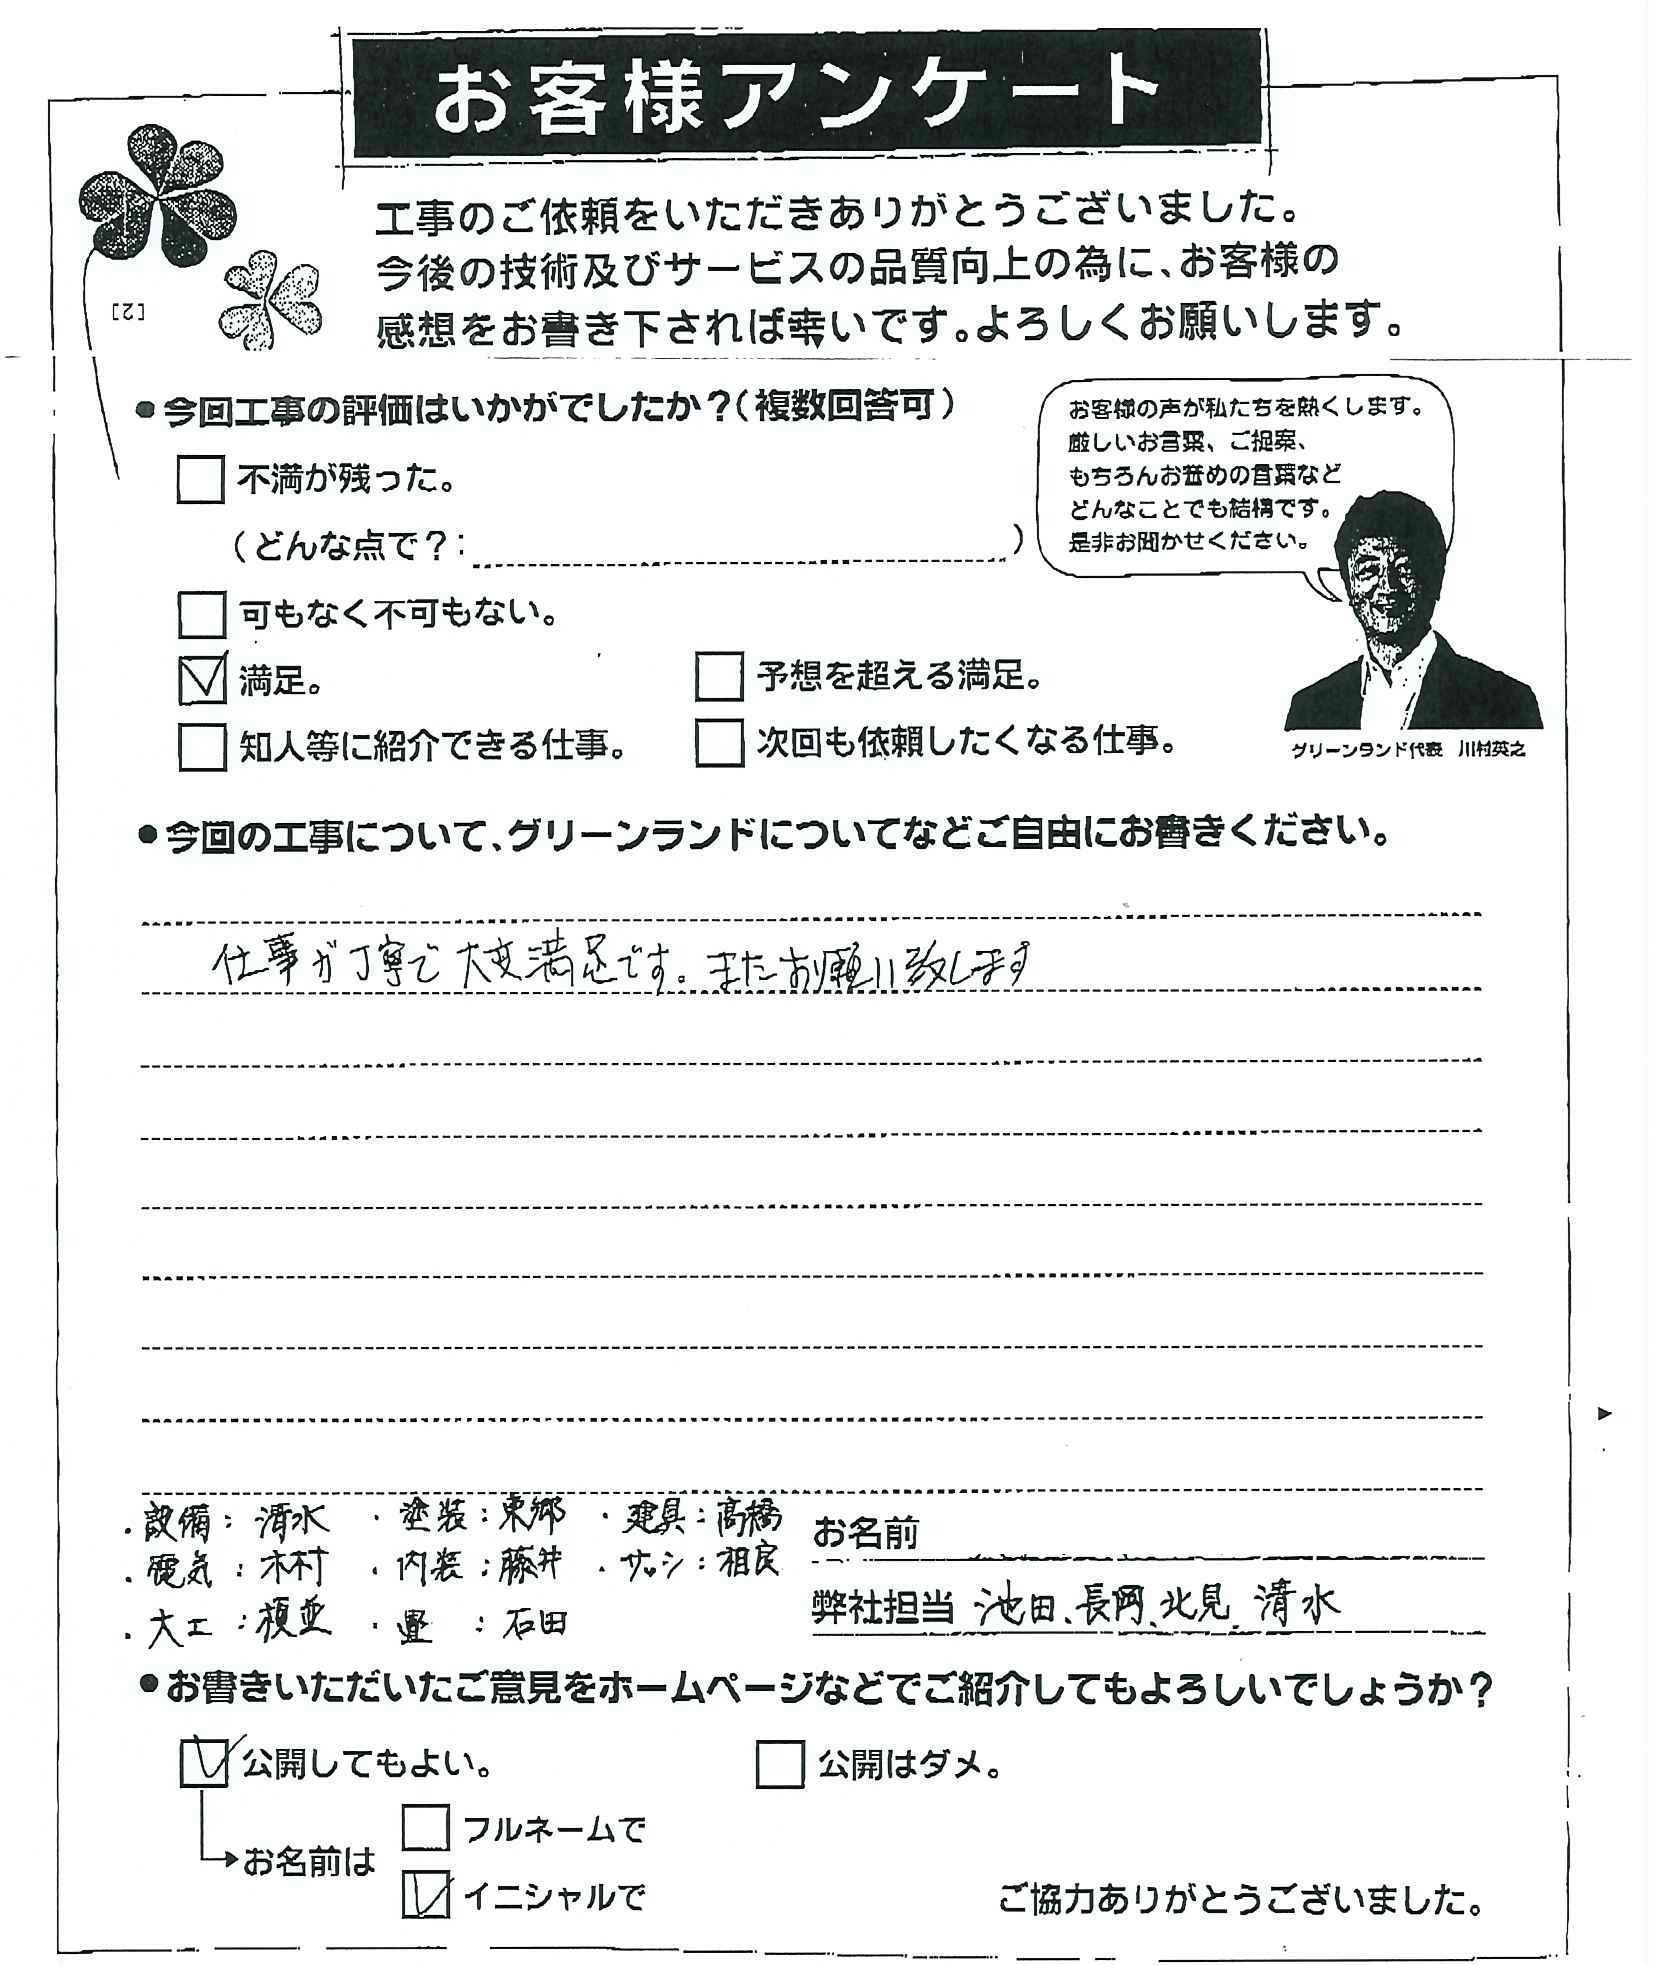 お客様アンケート
工事のご依頼をいただきありがとうございました。
今後の技術及びサービスの品質向上の為に、お客様の
感想をお書き下されば幸いです。よろしくお願いします。
[2]
●今回工事の評価はいかがでしたか？（複数回答可）
不満が残った。
（どんな点で？：　）
可もなく不可もない。
満足。
予想を超える満足。
知人等に紹介できる仕事。
次回も依頼したくなる仕事。
お客様の声が私たちを熱くします。
厳しいお言葉、ご提案、
もちろんお誉めの言葉など
どんなことでも結構です。
是非お聞かせください。
グリーンランド代表　川村英之
●今回の工事について、グリーンランドについてなどご自由にお書きください。
仕事が丁寧で大変満足です。またお願い致します
・設備：清水　・塗装：東郷　・建具：高橋
・電気：木村　・内装：藤井　・サッシ：相良
・大工：榎並　・畳：石田
お名前
弊社担当　池田、長岡、北見、清水
●お書きいただいたご意見をホームページなどでご紹介してもよろしいでしょうか？
公開してもよい。
公開はダメ。
お名前は
フルネームで
イニシャルで
ご協力ありがとうございました。